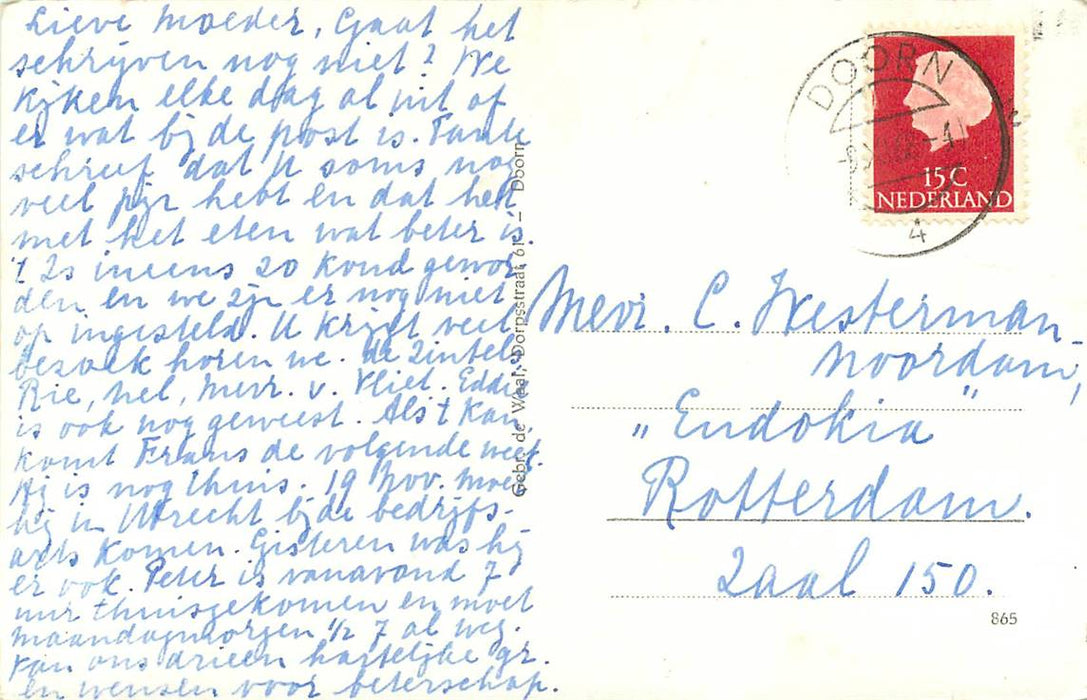 Lieve Moeder, Gaat het
schrijven nog niet? We
kijken elke dag al uit of
er wat bij de post is. Tante
schreef dat U soms nog
veel pijn hebt en dat het
met het eten wat beter is.
't Is ineens 20 koud gewor
den en we zijn er nog niet
op ingesteld. U krijgt veel
bezoek horen we. de Zintels
Rie, Nel, Mevr. v. Vliet. Eddie
is ook nog geweest. Als 't kan
komt Frans de volgende week.
Hij is nog thuis. 19 Nov. moet
hij in Utrecht bij de bedrijfs-
arts komen. Gisteren was hij
er ook. Peter is vanavond 7
uur thuisgekomen en moet
maandagmorgen ½ 7 al weg.
Van ons drieën hartelijke gr.
en wensen voor beterschap.
Gebr. de Waal, Dorpsstraat 61 – Doorn
DOORN
4
15 C
NEDERLAND
Mevr. C. Westerman-
Noordam,
„Eudokia"
Rotterdam.
Zaal 150.
865